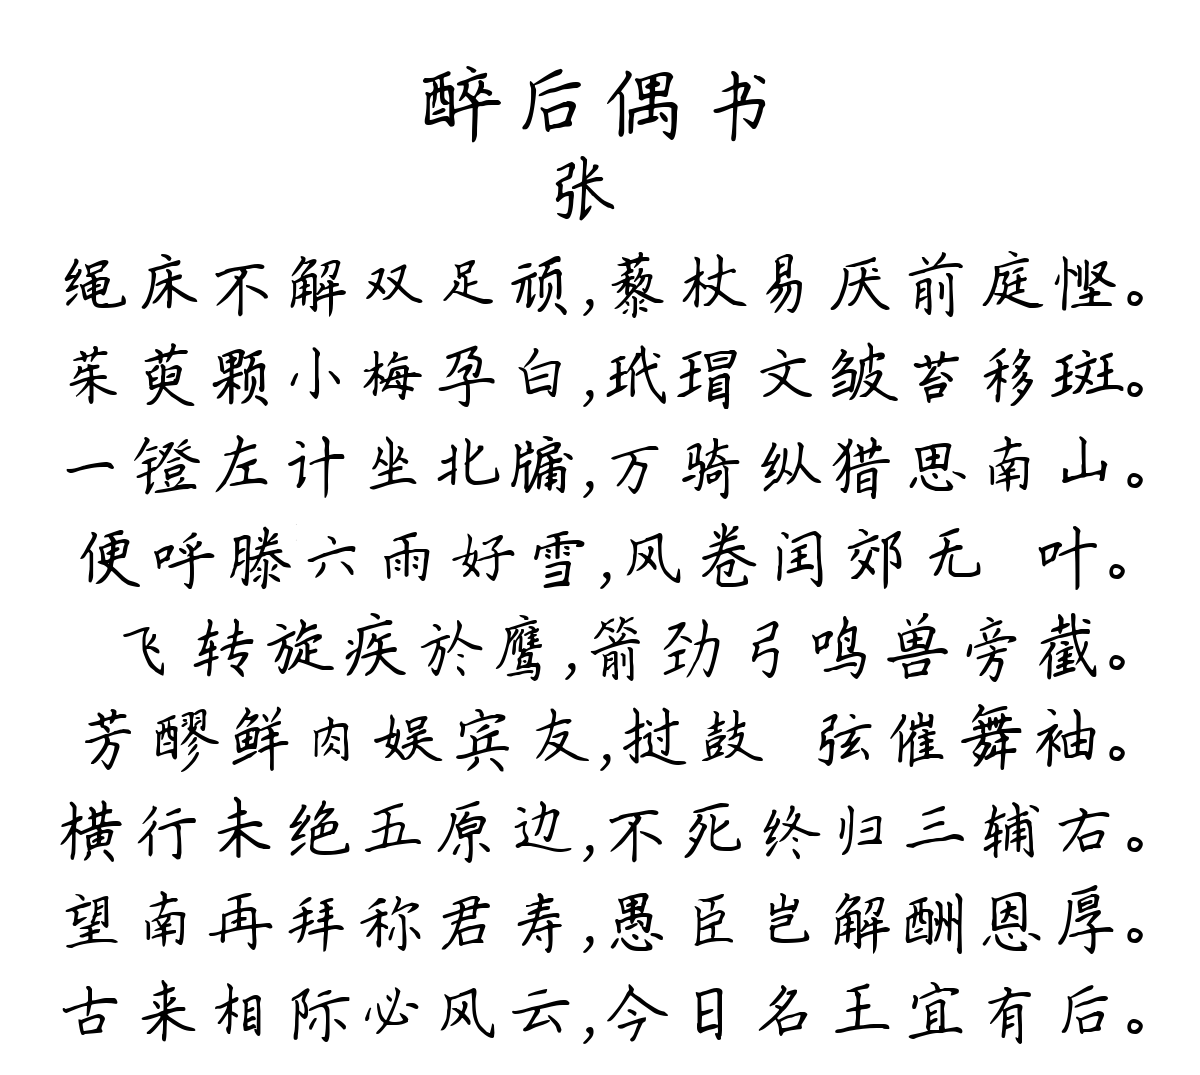 醉后偶书
张
绳床不解双足顽,藜杖易厌前庭悭。
茱萸颗小梅孕白,玳瑁文皱苔移斑。
一镫左计坐北牖,万骑纵猎思南山。
便呼滕六雨好雪,风卷闰郊无 叶。
飞转旋疾於鹰,箭劲弓鸣兽旁截。
芳醪鲜肉娱宾友,挝鼓 弦催舞袖。
横行未绝五原边,不死终归三辅右。
望南再拜称君寿,愚臣岂解酬恩厚。
古来相际必风云,今日名王宜有后。